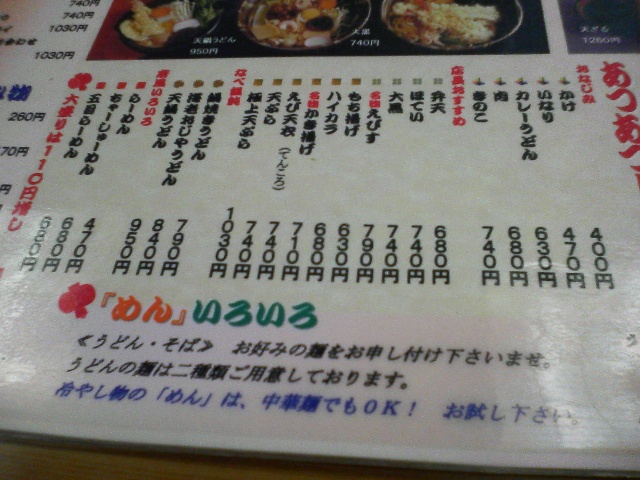 740円
740円
1030円
1030円
260円
70円
円
天鍋うどん
950円
大黒
740円
天ざる
1260円
あつあつ
おなじみ
かけ 400円
いなり 470円
カレーうどん 630円
肉 680円
きのこ 740円
店長おすすめ
弁天 680円
ほてい 740円
大黒 740円
名物 えびす 790円
もち揚げ 630円
ハイカラ 680円
名物 かき揚げ 710円
えび天衣(てんころ) 740円
天ぷら 740円
極上天ぷら 1030円
なべ
鍋焼きうどん 790円
海老おじやうどん 840円
天鍋うどん 950円
いろいろ
らーめん 470円
ちゃーしゅーめん 680円
五目らーめん
大盛りは110円増し
『めん』いろいろ
≪うどん・そば≫ お好みの麺をお申し付け下さいませ。
うどんの麺は二種類ご用意しております。
冷やし物の「めん」は、中華麺でもOK! お試し下さい。